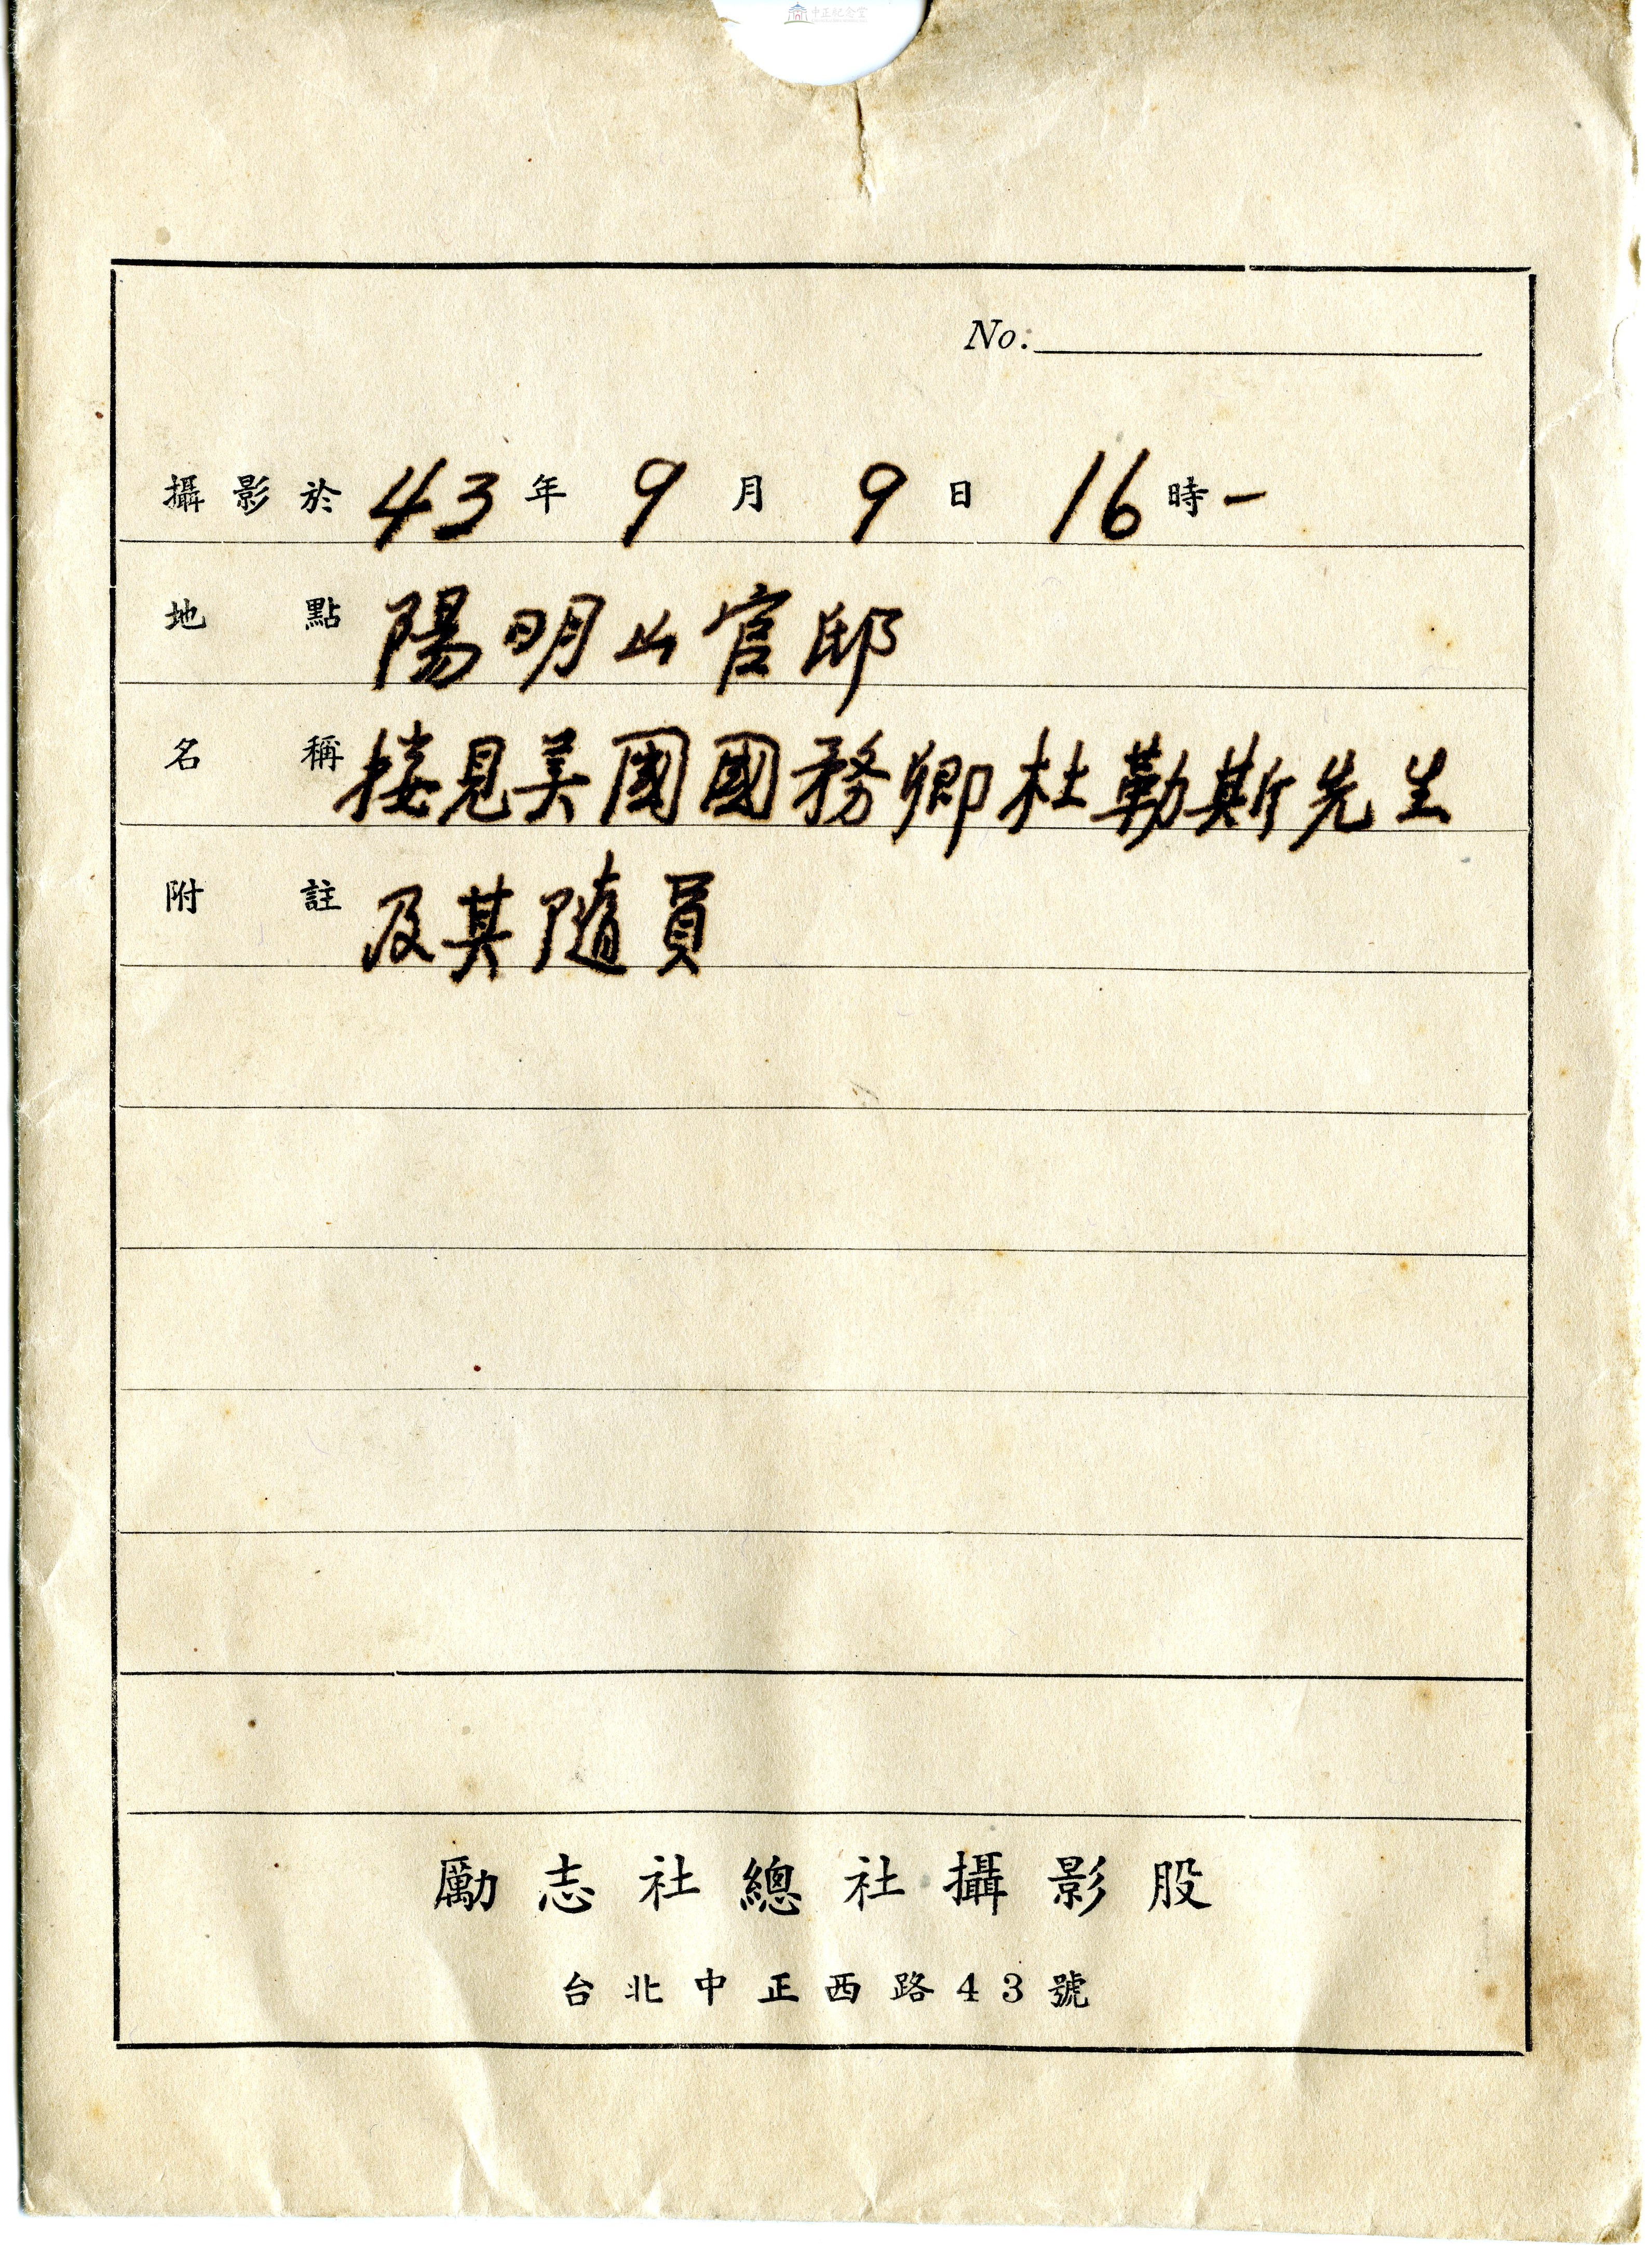 中正紀念堂
No:
攝影於 43 年 9 月 9 日 16 時 一
地點 陽明山官邸
名稱 接見美國國務卿杜勒斯先生
附註 及其隨員
勵志社總社攝影股
台北中正西路43號